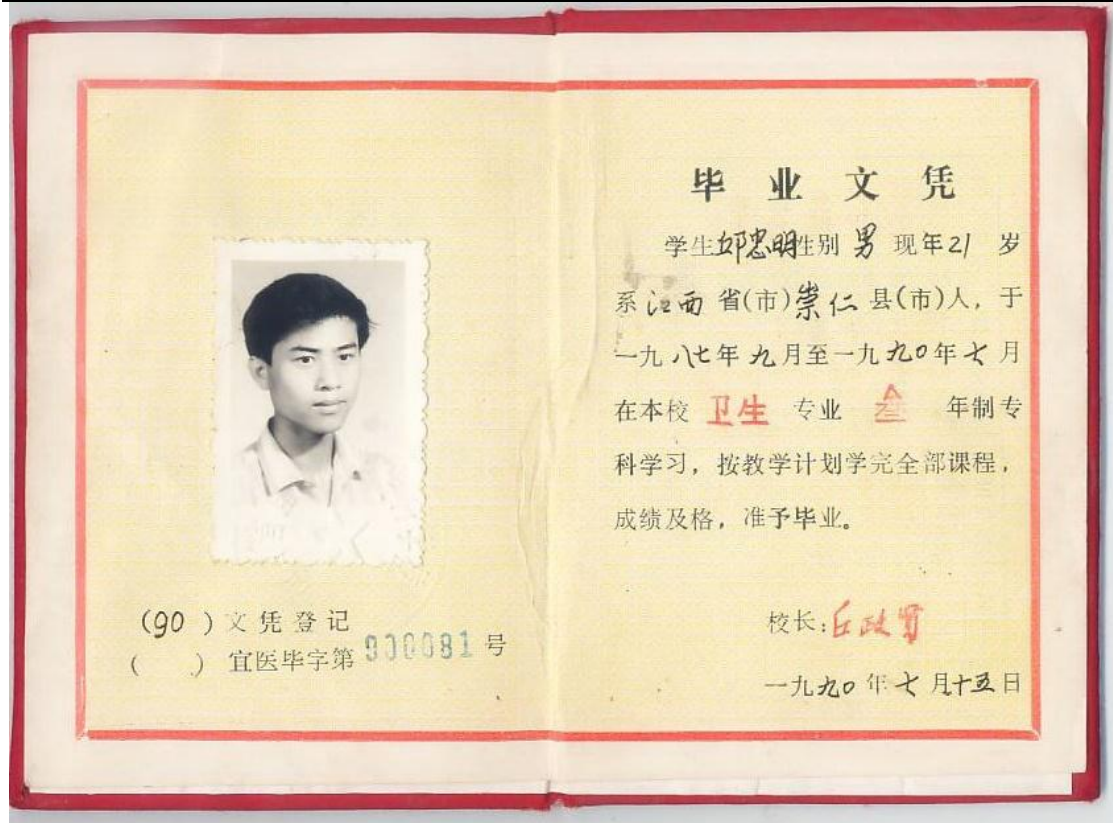 (90)文凭登记
( )宜医毕字第900081号
毕业文凭
学生邱忠明性别 男 现年21 岁
系江西省(市)崇仁县(市)人，于
一九八七年九月至一九九〇年七月
在本校 卫生 专业 叁 年制专
科学习，按教学计划学完全部课程，
成绩及格，准予毕业。
校长：丘政贤
一九九〇年七月十五日